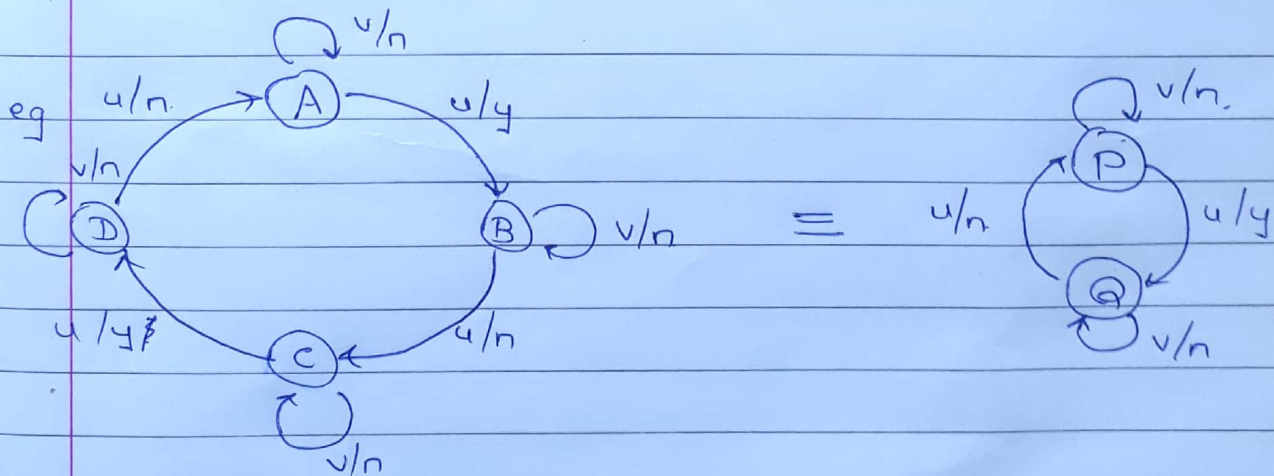 v/n
eg
u/n.
A
u/y
v/n
D
B
v/n
≡
u/y
C
u/n
v/n
v/n.
P
u/n
u/y
Q
v/n